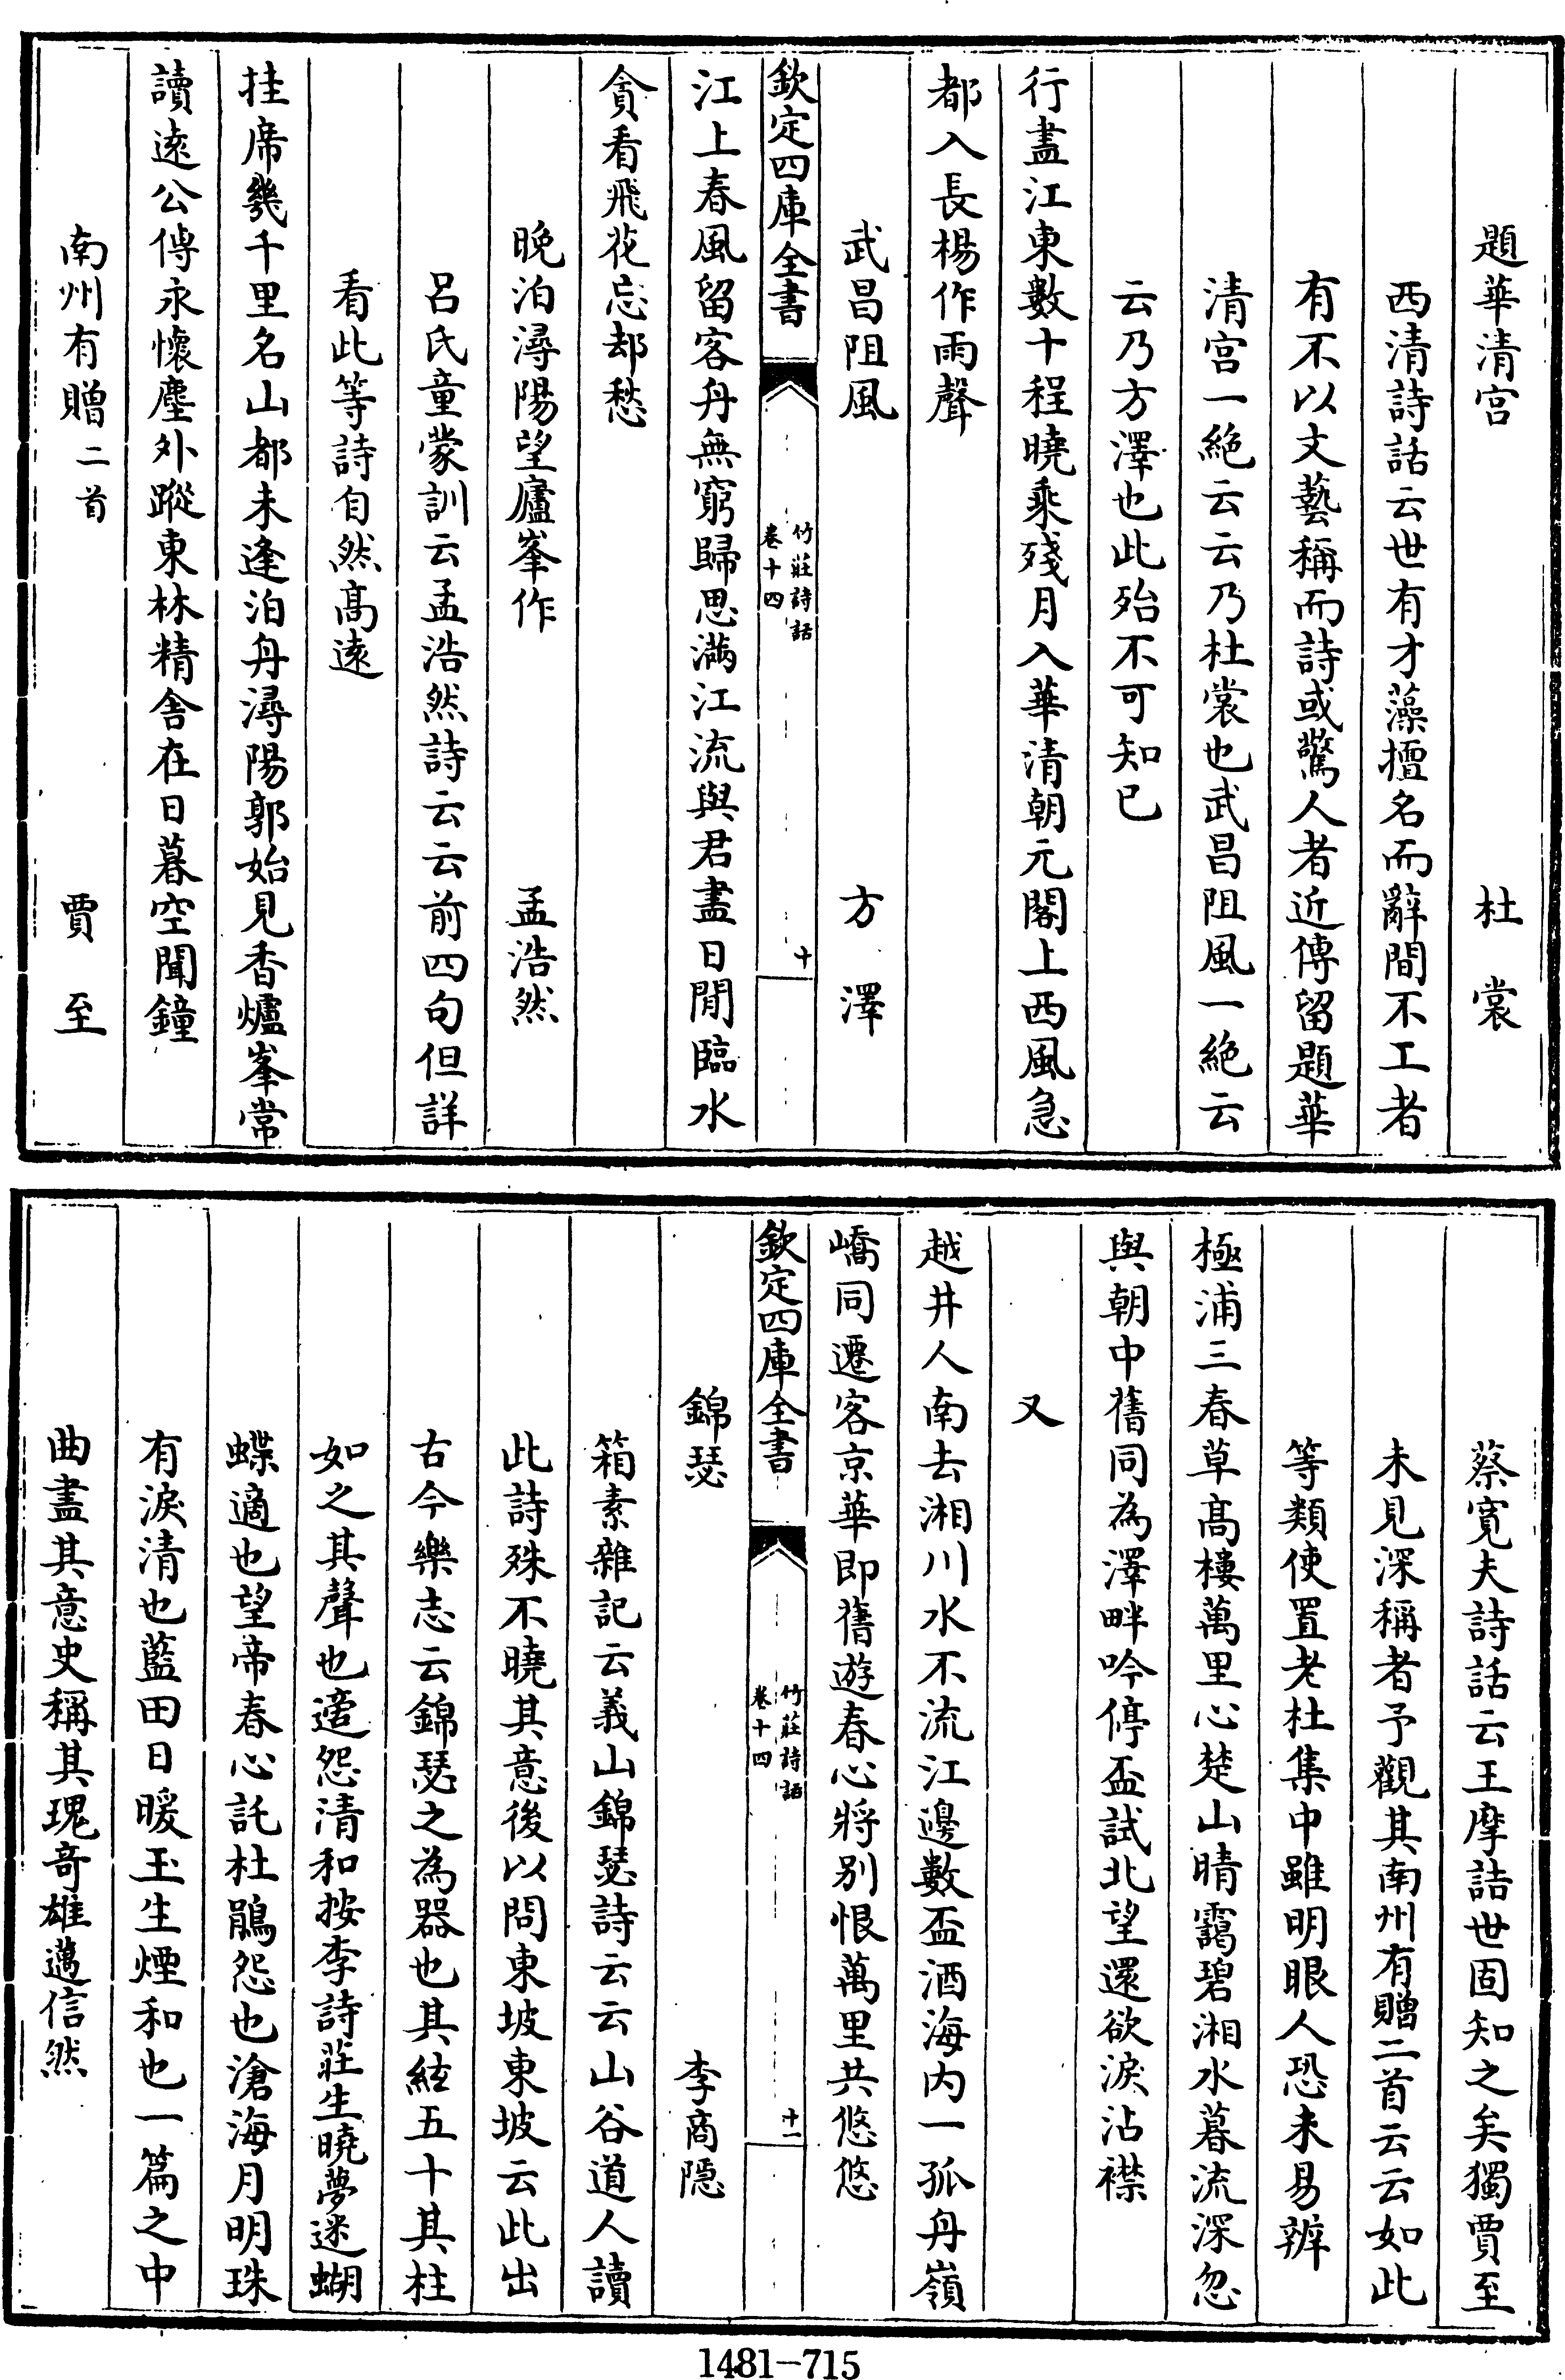 題華清宮　杜裳
西清詩話云世有才藻擅名而辭間不工者
有不以文藝稱而詩或驚人者近傳留題華
清宮一絶云云乃杜裳也武昌阻風一絶云
云乃方澤也此殆不可知已
行盡江東數十程曉乘殘月入華清朝元閣上西風急
都入長楊作雨聲
武昌阻風　方澤
欽定四庫全書
竹莊詩話
卷十四
十
江上春風留客舟無窮歸思滿江流與君盡日閒臨水
貪看飛花忘却愁
晚泊潯陽望廬峯作　孟浩然
呂氏童蒙訓云孟浩然詩云云前四句但詳
看此等詩自然髙遠
挂席幾千里名山都未逢泊舟潯陽郭始見香爐峯常
讀遠公傳永懷塵外蹤東林精舍在日暮空聞鐘
南州有贈二首　賈至
蔡寛夫詩話云王摩詰世固知之矣獨賈至
未見深稱者予觀其南州有贈二首云云如此
等類使置老杜集中雖明眼人恐未易辨
極浦三春草髙樓萬里心楚山晴靄碧湘水暮流深忽
與朝中舊同為澤畔吟停盃試北望還欲淚沾襟
又
越井人南去湘川水不流江邊數盃酒海内一孤舟嶺
嶠同遷客京華即舊遊春心將别恨萬里共悠悠
欽定四庫全書
竹莊詩話
卷十四
十一
錦瑟　李商隱
箱素雜記云義山錦瑟詩云云山谷道人讀
此詩殊不曉其意後以問東坡東坡云此出
古今樂志云錦瑟之為器也其絃五十其柱
如之其聲也適怨清和按李詩莊生曉夢迷蝴
蝶適也望帝春心託杜鵑怨也滄海月明珠
有淚清也藍田日暖玉生煙和也一篇之中
曲盡其意史稱其瑰竒雄邁信然
1481-715